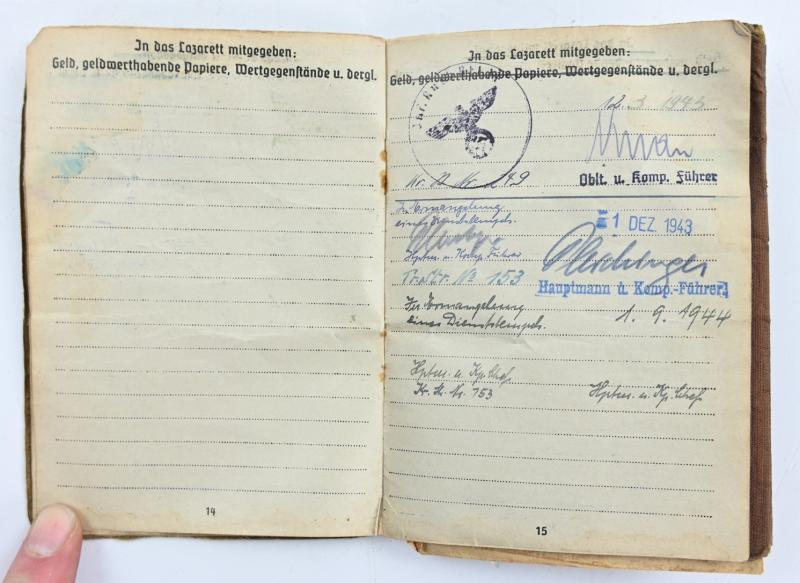 In das Lazarett mitgegeben:
Geld, geldwerthabende Papiere, Wertgegenstände u. dergl.
14
In das Lazarett mitgegeben:
Geld, geldwerthabende Papiere, Wertgegenstände u. dergl.
12. 3. 1943
Oblt. u. Komp. Führer
249
In Ermangelung
eines Dienststempels.
1 DEZ. 1943
Hptm. u. Komp. Führer
Hauptmann u. Komp.-Führer
No 153
In Ermangelung
eines Dienststempels.
1. 9. 1944
Hptm. u. Kp. Chef
153
Hptm. u. Kp. Chef
15